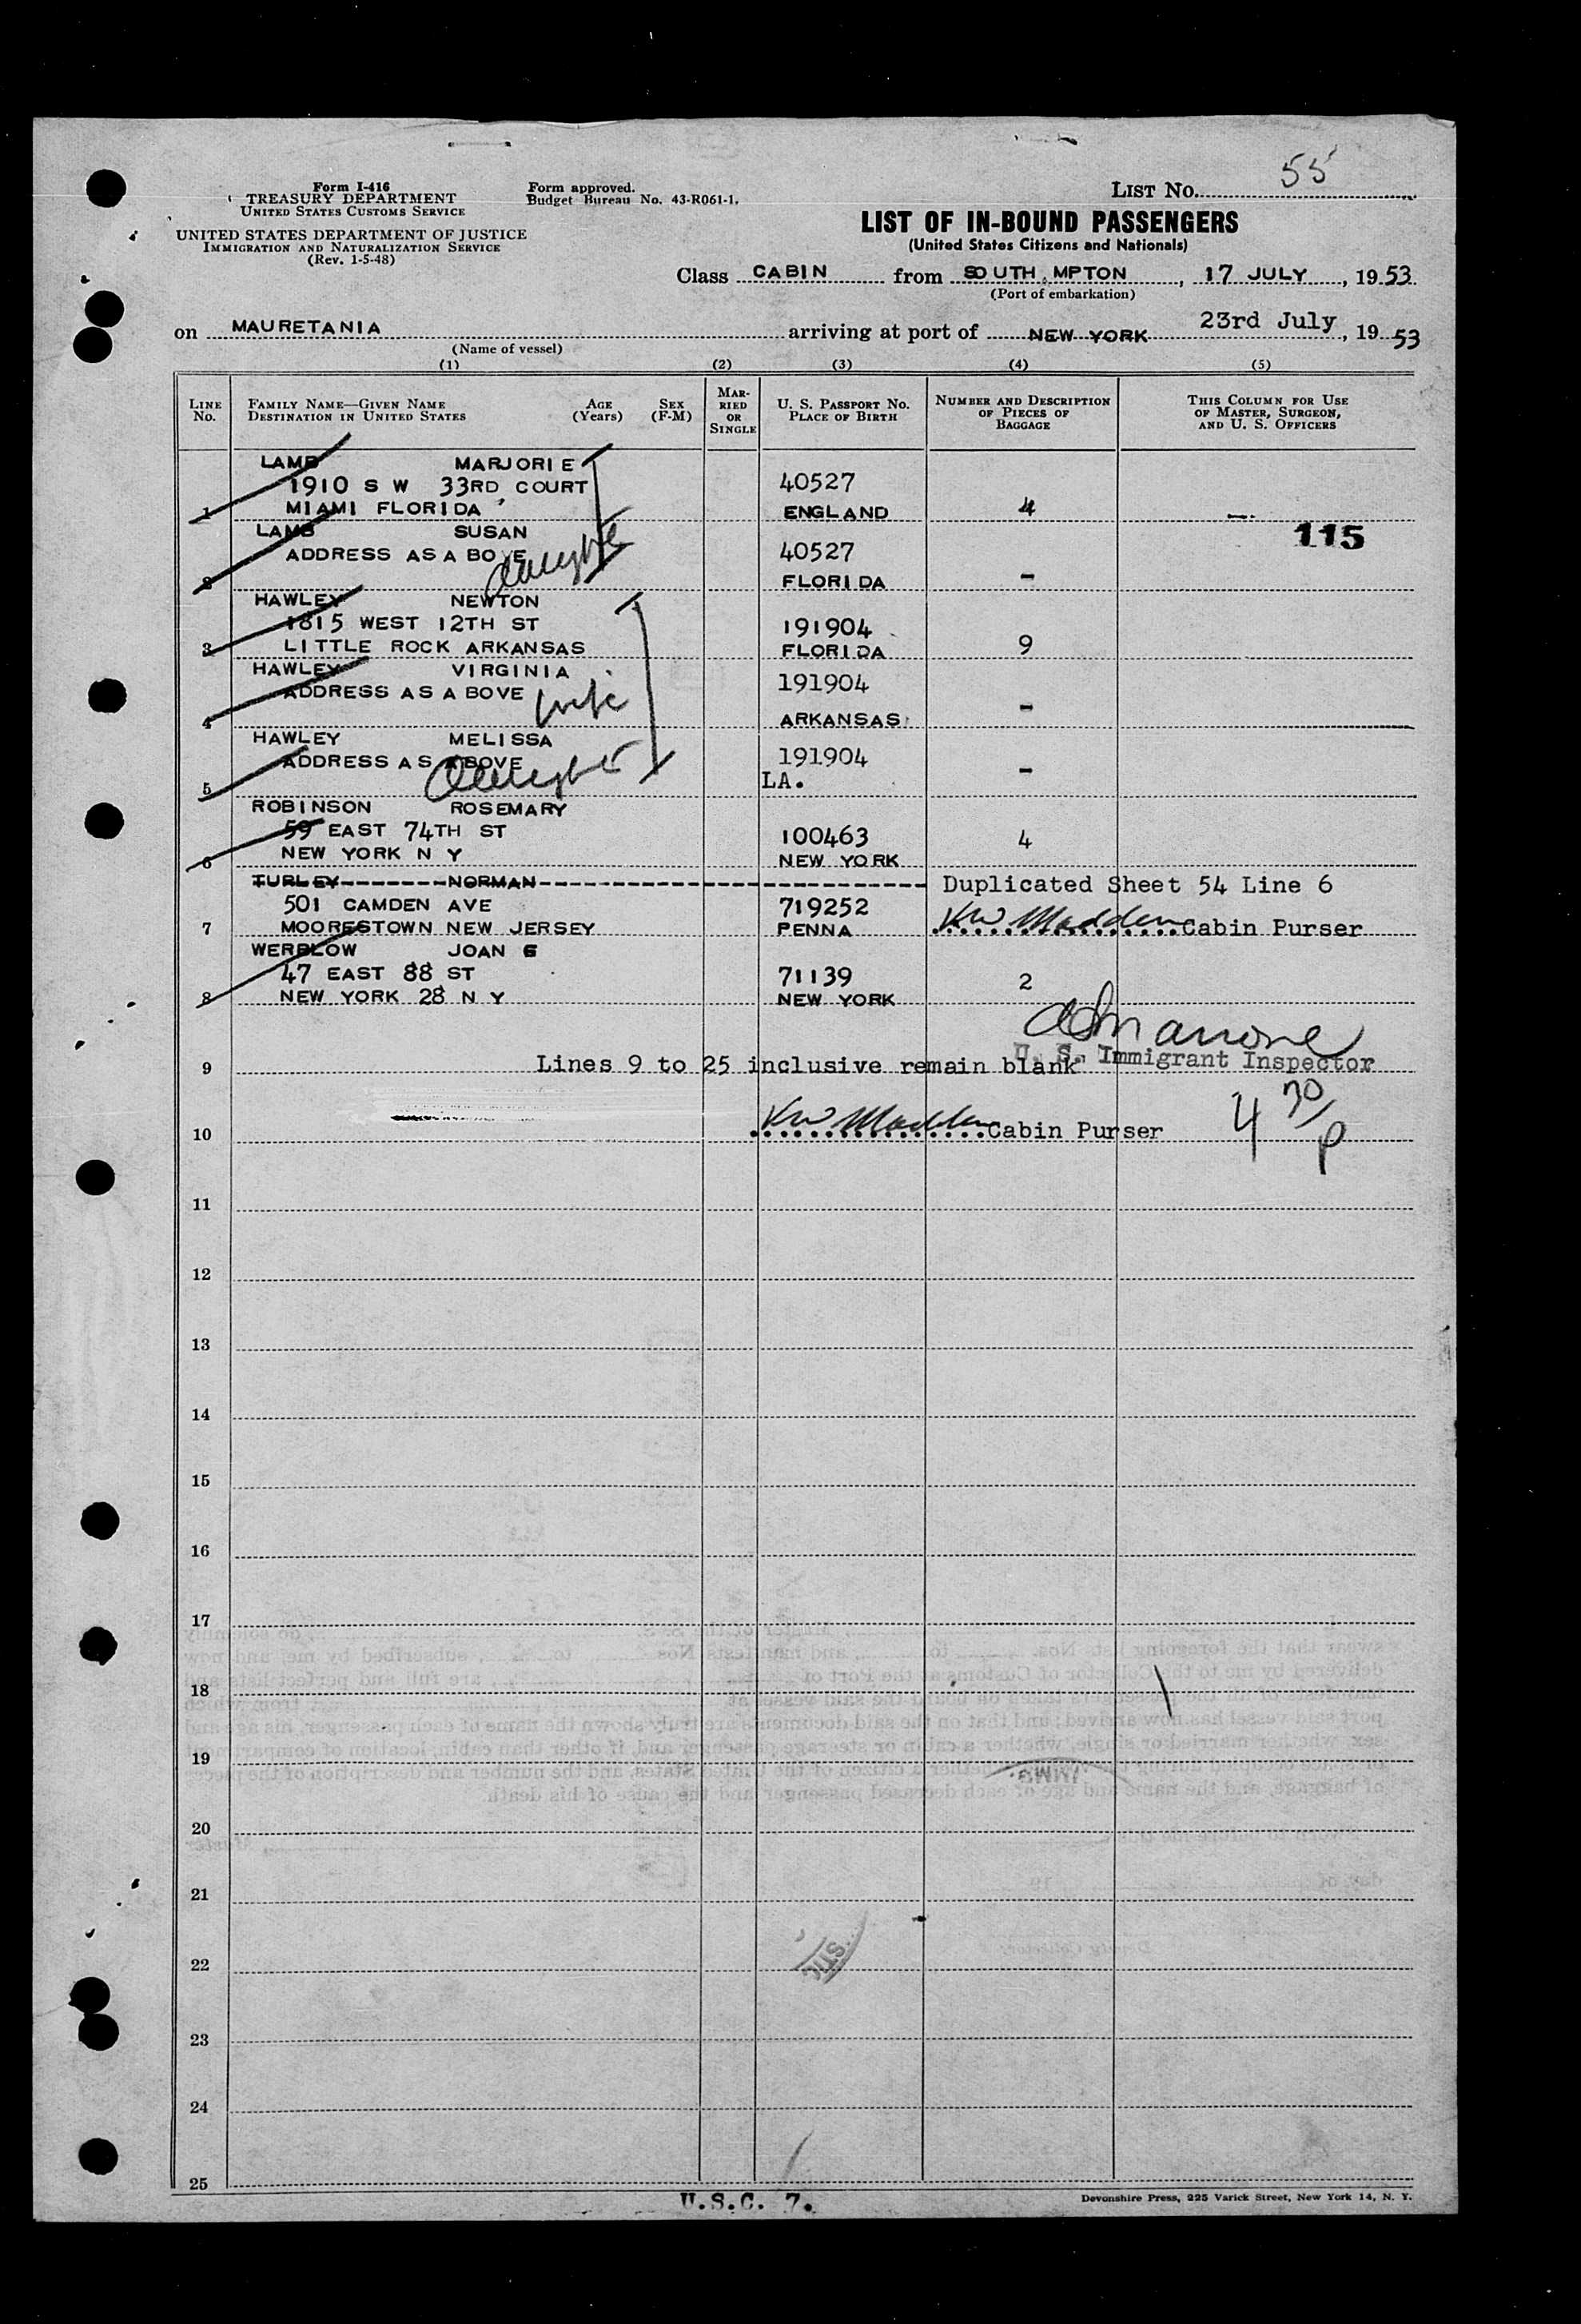 55
Form I-416
TREASURY DEPARTMENT
UNITED STATES CUSTOMS SERVICE
UNITED STATES DEPARTMENT OF JUSTICE
IMMIGRATION AND NATURALIZATION SERVICE
(Rev. 1-5-48)
Form approved.
Budget Bureau No. 43-R061-1.
LIST No.
LIST OF IN-BOUND PASSENGERS
(United States Citizens and Nationals)
Class CABIN from SOUTH MPTON, 17 JULY, 1953
(Port of embarkation)
on MAURETANIA arriving at port of NEW YORK 23rd July, 1953
(Name of vessel)
(1) (2) (3) (4) (5)
LINE No. FAMILY NAME—GIVEN NAME DESTINATION IN UNITED STATES AGE (Years) SEX (F-M) MARRIED OR SINGLE U. S. PASSPORT NO. PLACE OF BIRTH NUMBER AND DESCRIPTION OF PIECES OF BAGGAGE THIS COLUMN FOR USE OF MASTER, SURGEON, AND U. S. OFFICERS
LAMB MARJORIE
1910 S W 33RD COURT 40527
1 MIAMI FLORIDA ENGLAND 4 —
LAMB SUSAN 115
ADDRESS AS A BOVE daughter 40527
2 FLORIDA -
HAWLEY NEWTON
1815 WEST 12TH ST 191904
3 LITTLE ROCK ARKANSAS FLORIDA 9
HAWLEY VIRGINIA
ADDRESS AS A BOVE wife 191904
4 ARKANSAS -
HAWLEY MELISSA
ADDRESS AS ABOVE daughter 191904
5 LA. -
ROBINSON ROSEMARY
59 EAST 74TH ST 100463 4
6 NEW YORK N Y NEW YORK
TURLEY-------NORMAN---------------------------- Duplicated Sheet 54 Line 6
501 CAMDEN AVE 719252
7 MOORESTOWN NEW JERSEY PENNA KW Madden Cabin Purser
WERBLOW JOAN G
47 EAST 88 ST 71139 2
8 NEW YORK 28 N Y NEW YORK
U. S. Immigrant Inspector
9 Lines 9 to 25 inclusive remain blank
10 KW Madden Cabin Purser 4 30/p
11
12
13
14
15
16
17
18
19
20
21
22
23
24
25
U.S.C. 7.
Devonshire Press, 225 Varick Street, New York 14, N. Y.